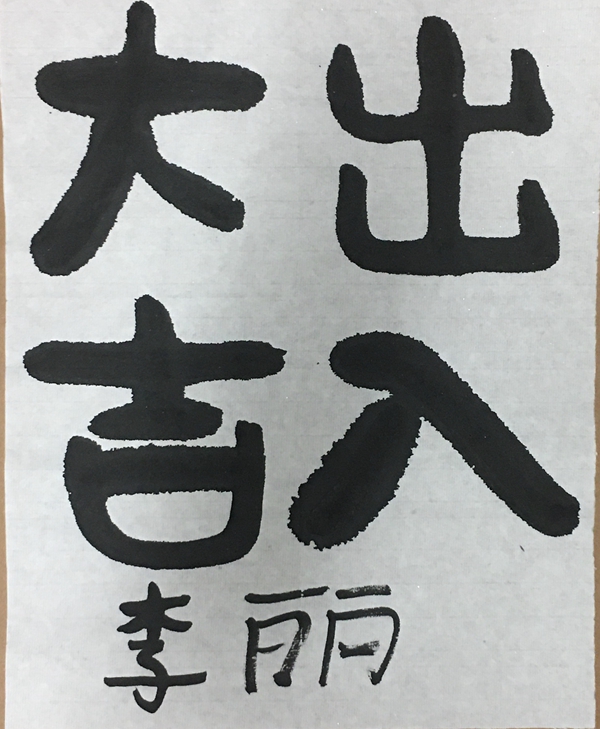 出入
大吉
李丽